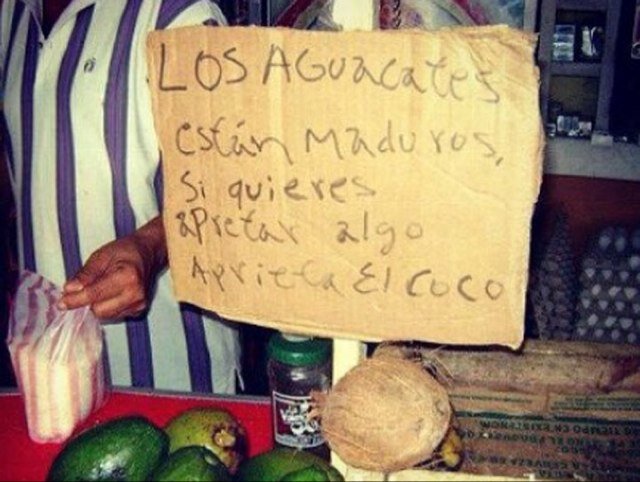 LOS AGUACATES
están MADUROS,
Si quieres
apretar algo
Aprieta El COCO